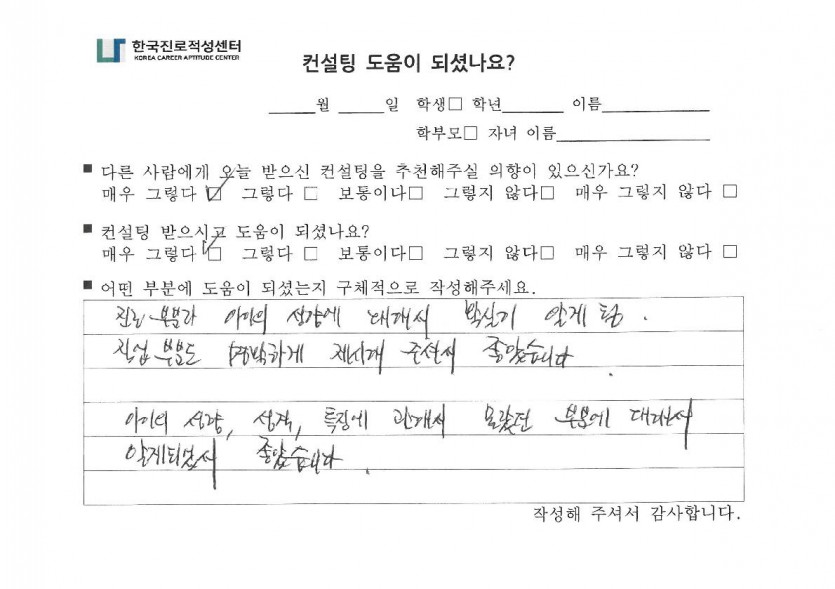 한국진로적성센터
KOREA CAREER APTITUDE CENTER
컨설팅 도움이 되셨나요?
_____월 _____일 학생□ 학년_______ 이름____________
학부모□ 자녀 이름_________________
■ 다른 사람에게 오늘 받으신 컨설팅을 추천해주실 의향이 있으신가요?
매우 그렇다 ☑ 그렇다 □ 보통이다□ 그렇지 않다□ 매우 그렇지 않다 □
■ 컨설팅 받으시고 도움이 되셨나요?
매우 그렇다 ☑ 그렇다 □ 보통이다□ 그렇지 않다□ 매우 그렇지 않다 □
■ 어떤 부분에 도움이 되셨는지 구체적으로 작성해주세요.
진로 부분과 아이의 성향에 대해서 확실히 알게 됨.
직업 부분도 명확하게 제시해 주셔서 좋았습니다.
아이의 성향, 성격, 특징에 관해서 몰랐던 부분에 대해서
알게되었서 좋았습니다.
작성해 주셔서 감사합니다.